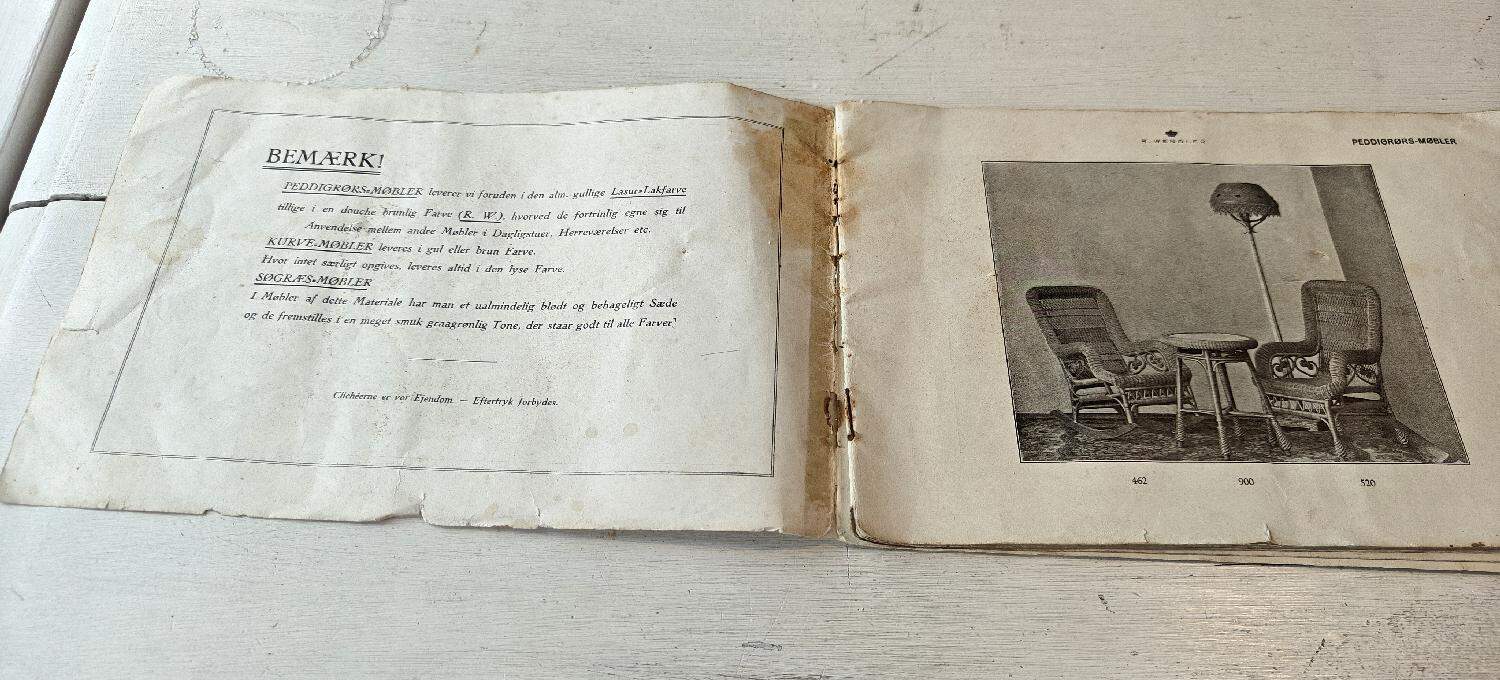 BEMÆRK!
PEDDIGRØRS-MØBLER leverer vi foruden i den alm. gullige Lasur-Lakfarve
tillige i en douche brunlig Farve (R. W.), hvorved de fortrinlig egne sig til
Anvendelse mellem andre Møbler i Dagligstuer, Herreværelser etc.
KURVE-MØBLER leveres i gul eller brun Farve.
Hvor intet særligt opgives, leveres altid i den lyse Farve.
SØGRÆS-MØBLER
I Møbler af dette Materiale har man et ualmindelig blødt og behageligt Sæde
og de fremstilles i en meget smuk graagrønlig Tone, der staar godt til alle Farver.
Clichéerne er vor Ejendom — Eftertryk forbydes.
R. WENGLER
PEDDIGRØRS-MØBLER
462 900 520